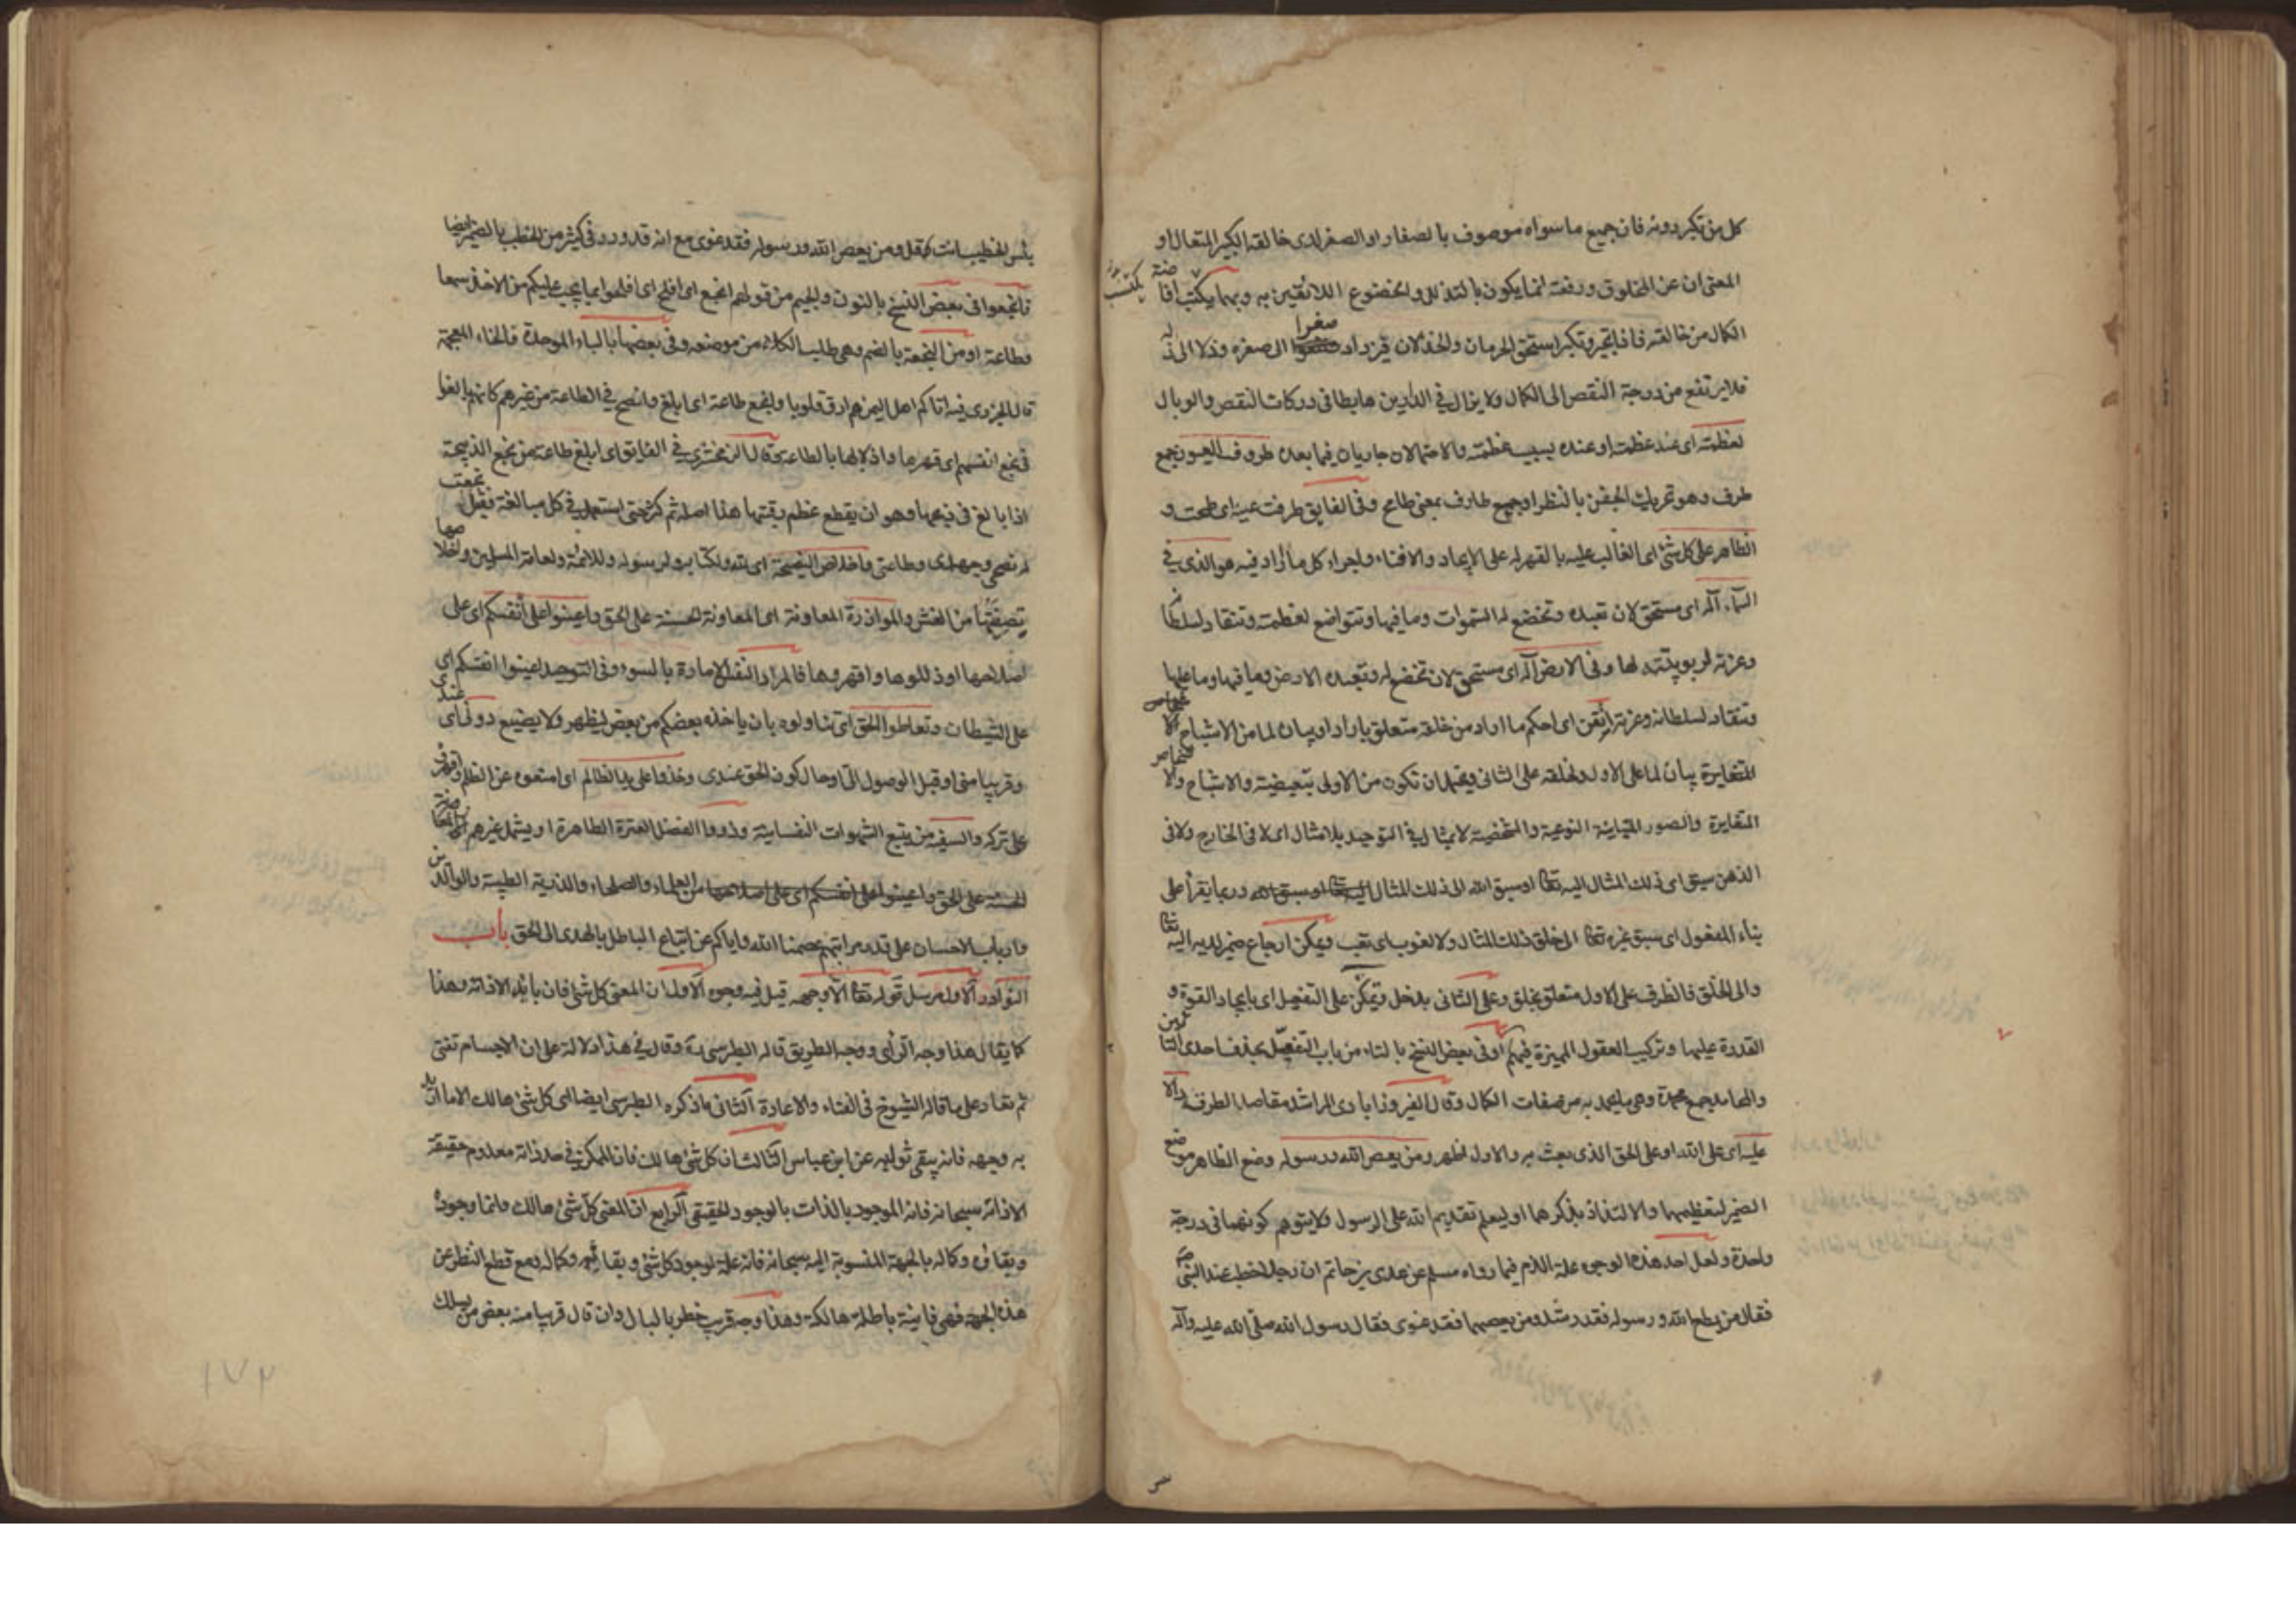 كل من تكبر دونه فان جميع ما سواه موصوف بالصغار او الصغر لدى خالقه الكبير المتعال او
المعنى ان عن المخلوق ورفعته انما يكون بالتذلل والخضوع اللائقين به وبهما يكتسب افاضة
الكمال من خالقه فاذا تجبر وتكبر استحق الحرمان والخذلان فيزداد صغرا الى صغره وذلا الى ذله
فلا يرتفع من درجة النقص الى الكمال ولا يزال في الدارين هابطا في دركات النقص والوبال
لعظمته اى عند عظمته او عنده بسبب عظمته والاحتمالان جاريان فيما بعده طروف العيون جمع
طرف وهو تحريك الجفن بالنظر او جمع طارف بمعنى طامح وفى الفايق طرفت عينه اى طمحت و
الظاهر على كل شئ اى الغالب عليه بالقهر له على الايجاد والافناء واجراء كل ما اراد فيه هو الذى في
السماء آله اى مستحق لان تعبده وتخضع له السموات وما فيها وتتواضع لعظمته وتنقاد لسلطانه
وعزته لربوبيته لها وفى الارض آله اى مستحق لان تخضع له وتعبده الارض وما فيها وما عليها
وتنقاد لسلطانه وعزته اتقن اى احكم ما اراد من خلقه متعلق باراد او بيان لما من الاشباح
المتغايرة بيان لما على الاول ولخلقه على الثانى ويحتمل ان تكون من الاولى تبعيضية والاشباح والاشخاص
المتغايرة والصور المتباينة النوعية والشخصية لا بمثال في التوحيد بلا مثال اى لا فى الخارج ولا فى
الذهن سبق اى ذلك المثال اليه تعالى او سبق الله الى ذلك المثال وربما يقرأ على
بناء المفعول اى سبق غيره تعالى الى خلق ذلك المثال ولا لغوب اى تعب ويمكن ارجاع ضمير لديه اليه تعالى
والى الخلق فالظرف على الاول متعلق بخلق وعلى الثانى بدخل وتمكن على التفعيل اى بايجاد القوة و
القدرة عليها وتركيب العقول المميزة فيهم وفى بعض النسخ بالتاء من باب التفعل بحذف احدى التائين
والمحامد جمع محمدة وهى ما يحمد به من صفات الكمال وقال الفيروزابادى المراشد مقاصد الطرق
عليه اى على الله او على الحق الذى بعث به والاول اظهر ومن يعص الله ورسوله وضع الظاهر موضع
الضمير لتعظيمهما والالتذاذ بذكرهما او ليعلم تقديم الله على الرسول ولا يتوهم كونهما فى درجة
واحدة ولعل احد هذه الوجوه علة اللام فيما رواه مسلم عن عدى بن حاتم ان رجلا خطب عند النبى ص
فقال من يطع الله ورسوله فقد رشد ومن يعصهما فقد غوى فقال رسول الله صلى الله عليه وآله
بئس الخطيب انت قل ومن يعص الله ورسوله فقد غوى مع انه قد ورد فى كثير من الخطب بالضمير ايضا
فانجعوا فى بعض النسخ بالنون والجيم من قولهم انجع اى افلح اى افلحوا بما يجب عليكم من الاخذ سمعا
وطاعة او من النجعة بالضم وهى طلب الكلاء من موضعه وفى بعضها بالباء الموحدة فالخاء المعجمة
قال الجزرى فيه اتاكم اهل اليمن هم ارق قلوبا وابخع طاعة اى ابلغ وانصح في الطاعة من غيرهم كانهم بالغوا
فى بخع انفسهم اى قهرها واذلالها بالطاعة قال الزمخشرى في الفايق اى ابلغ طاعة من بخع الذبيحة
اذا بالغ فى ذبحها وهو ان يقطع عظم رقبتها هذا اصله ثم كثر حتى استعمل في كل مبالغة فقيل بخعت
له نصحى وجهدى وطاعتى واخلاص النصيحة اى لله ولكتابه ولرسوله وللائمة ولعامة المسلمين واخلاصها
تصفيتها من الغش والموازرة المعاونة اى المعاونة الحسنة على الحق واعينوا على انفسكم اى على
اصلاحها او ذللوها واقهروها فالمراد النفس الامارة بالسوء وفى التوحيد اعينوا انفسكم اى
على الشيطان وتعاطوا الحق اى تناولوه بان ياخذه بعضكم من بعض ليظهر ولا يضيع دونى اى عندى
وقريبا منى او قبل الوصول الى او حال كون الحق عندى وخذوا على يد الظالم اى امنعوه عن الظلم
على تركه والسفيه من يتبع الشهوات النفسانية وذووا الفضل العترة الطاهرة او يشمل غيرهم
من العلماء والصلحاء والذرية الطيبة والوالدين
وارباب الاحسان على قدر مراتبهم عصمنا الله واياكم عن اتباع الباطل بالهدى الى الحق باب
النوادر الاول مرسل قوله تعالى الا وجهه قيل فيه وجوه الاول ان المعنى كل شئ فان بائد الا ذاته وهذا
كما يقال هذا وجه الرأى ووجه الطريق قاله الطبرسى ره وقال في هذا دلالة على ان الاجسام تفنى
ثم تعاد على ما قاله الشيوخ فى الفناء والاعادة الثانى ما ذكره الطبرسى ايضا اى كل شئ هالك الا ما اريد
به وجهه فانه يبقى ثوابه عن ابن عباس الثالث ان كل شئ هالك فان الممكن في حد ذاته معدوم حقيقة
الا ذاته سبحانه فانه الموجود بالذات بالوجود الحقيقى الرابع ان المعنى كل شئ هالك وانما وجوده
وبقاؤه وكماله بالجهة المنسوبة اليه سبحانه فانه علة لوجود كل شئ وبقائه وكماله ومع قطع النظر عن
هذه الجهة فهى فانية باطلة هالكة وهذا وجه قريب خطر بالبال وان قال قريبا منه بعض من يسلك
١٧٢